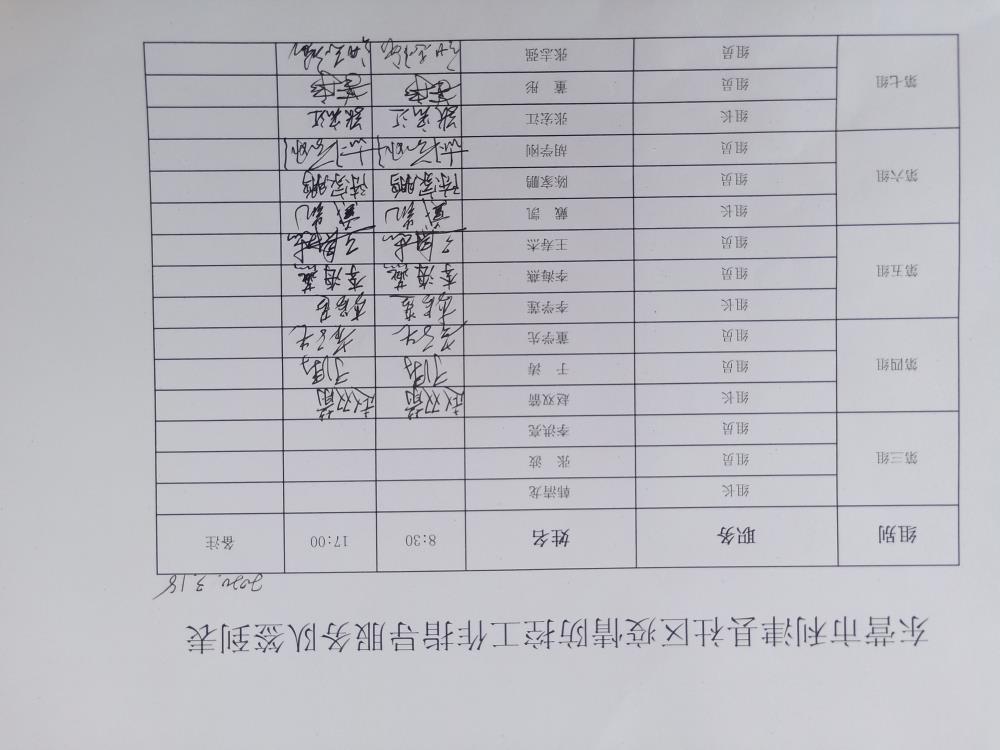 东营市利津县社区疫情防控工作指导服务队签到表
2020.3.18
组别 职务 姓名 8:30 17:00 备注
第三组 组长 韩清龙
组员 张 波
组员 李洪亮
第四组 组长 赵双箭 赵双箭 赵双箭
组员 于 涛 于涛 于涛
组员 董学先
第五组 组长 李学莲 李学莲
组员 李海燕 李海燕 李海燕
组员 王寿杰
第六组 组长 戴 凯 戴凯 戴凯
组员 陈家鹏 陈家鹏 陈家鹏
组员 胡学刚 胡学刚 胡学刚
第七组 组长 张宏江 张宏江 张宏江
组员 董 彤 董彤 董彤
组员 张志强